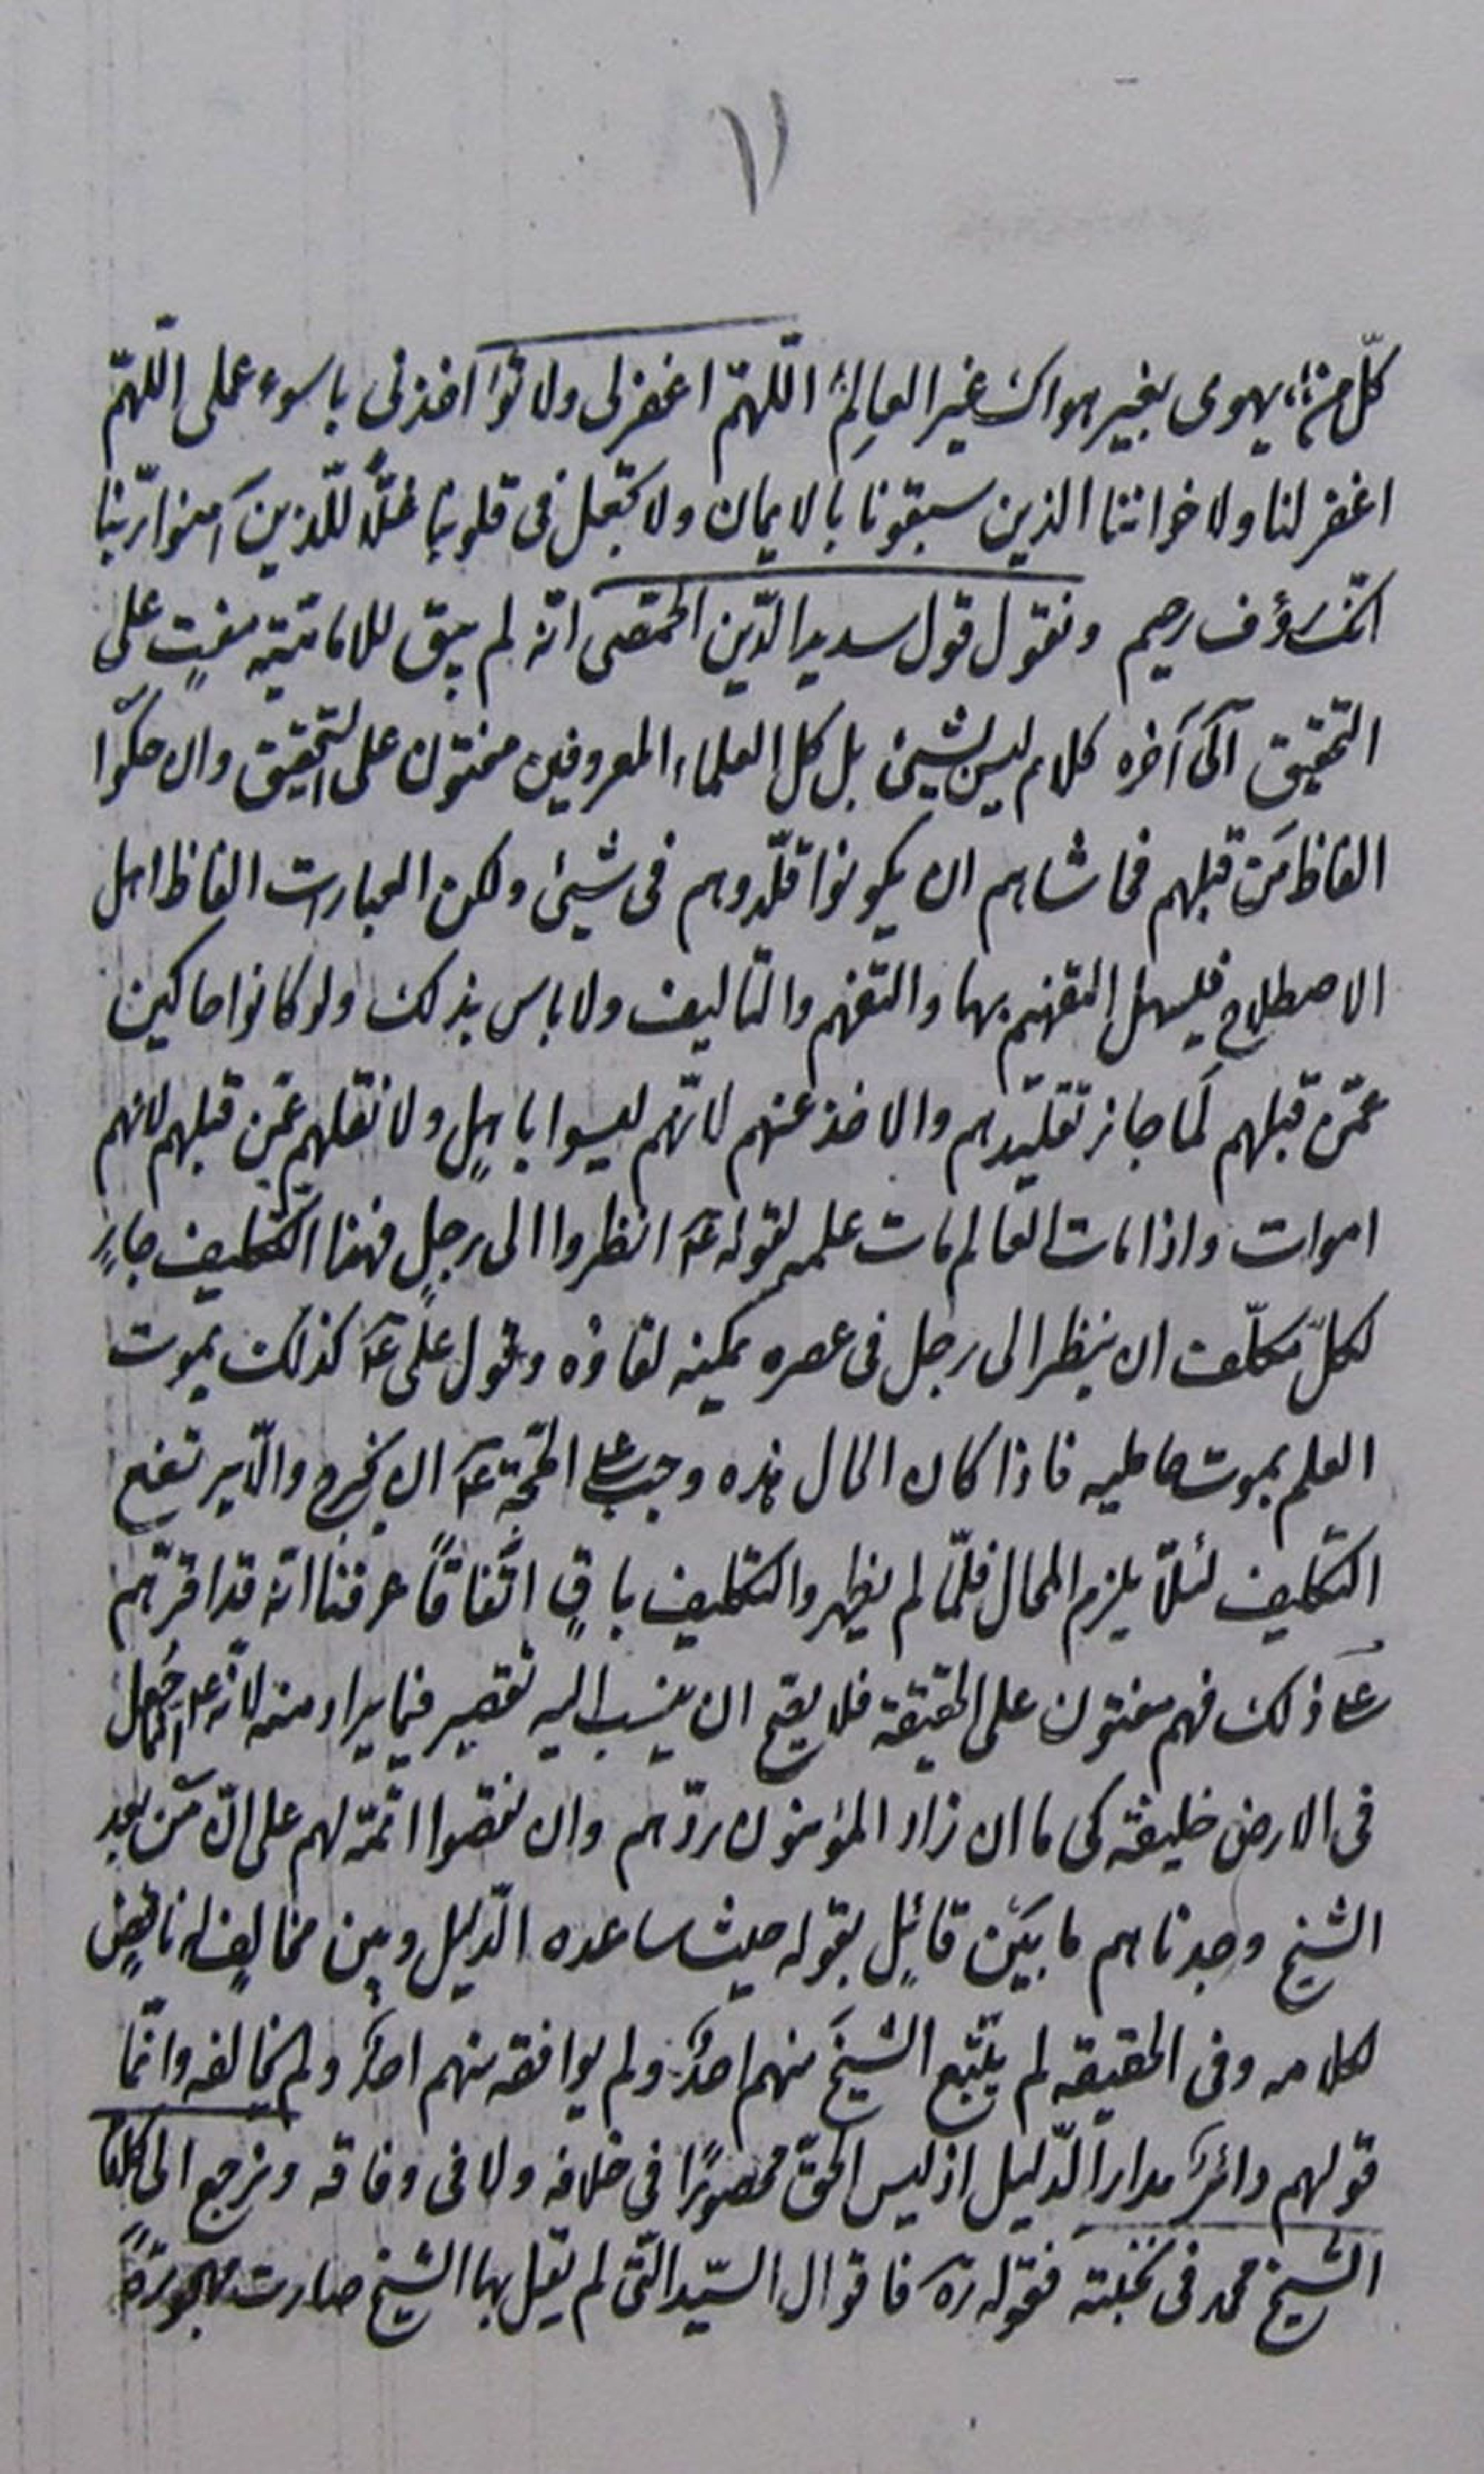 ١١
كلّ من يهوى بغير هواك غير العالِم اللّهمّ اغفر لى ولا تؤاخذنى باسوء عملى اللّهمّ
اغفر لنا ولاخواننا الذين سبقونا بالايمان ولا تجعل فى قلوبنا غلًّا للّذين آمنوا ربّنا
انّك رؤف رحيم ونقول قول سديد الدّين الحمّصى انّه لم يبق للاماميّة مفتٍ على
التحقيق آلى آخره كلام ليس بشيئ بل كل العلماء المعروفين مفتون على التّحقيق وان حكوا
الفاظ مَن قبلهم فحاشاهم ان يكونوا قلّدوهم فى شيئ ولكن العبارات الفاظ اهل
الاصطلاح فليسهل التفهيم بها والتفهم والتاليف ولا باس بذلك ولو كانوا حاكين
عمّن قبلهم لَما جاز تقليدهم والاخذ عنهم لانّهم ليسوا باهلٍ ولا نقلهم عمّن قبلهم لانهم
اموات واذا مات العالم مات علمه لقوله عۤ انظروا الى رجلٍ فهذا التّكليف جارٍ
لكلّ مكلّف ان ينظر الى رجل فى عصره يمكنه لقاؤه وقول علىّ عۤ كذلك يموت
العلم بموت حامليه فاذا كان الحال هذه وجب على الحجّة عۤ ان يخرج والّا يرتفع
التكليف لئلّا يلزم المحال فلمّا لم يظهر والتكليف باقٍ اتّفاقًا عرفنا انّه قد اقرّهم
على ذلك فهم مفتون على الحقيقة فلا يصح ان ينسب اليه تقصير فيما يراد منه لانّه عۤ جُعل
فى الارض خليفة كى ما ان زاد المؤمنون ردّهم وان نقصوا اتمّه لهم على انّ مَن بعد
الشيخ وجدناهم ما بَيْن قائلٍ بقوله حيث ساعده الدّليل وبين مخالفٍ له ناقضٍ
لكلامه وفى الحقيقه لم يتّبع الشيخَ منهم احدٌ ولم يوافقه منهم احدٌ ولم يخالفه وانّما
قولهم دائرٌ مدار الدّليل اذ ليس الحقّ محصورًا فى خلافه ولا فى وفاقه ونرجع الى كلام
الشيخ محمد فى نخبته فقوله رۤه فاقوال السّيد التّى لم يقل بها الشيخ صارت مهجورةً